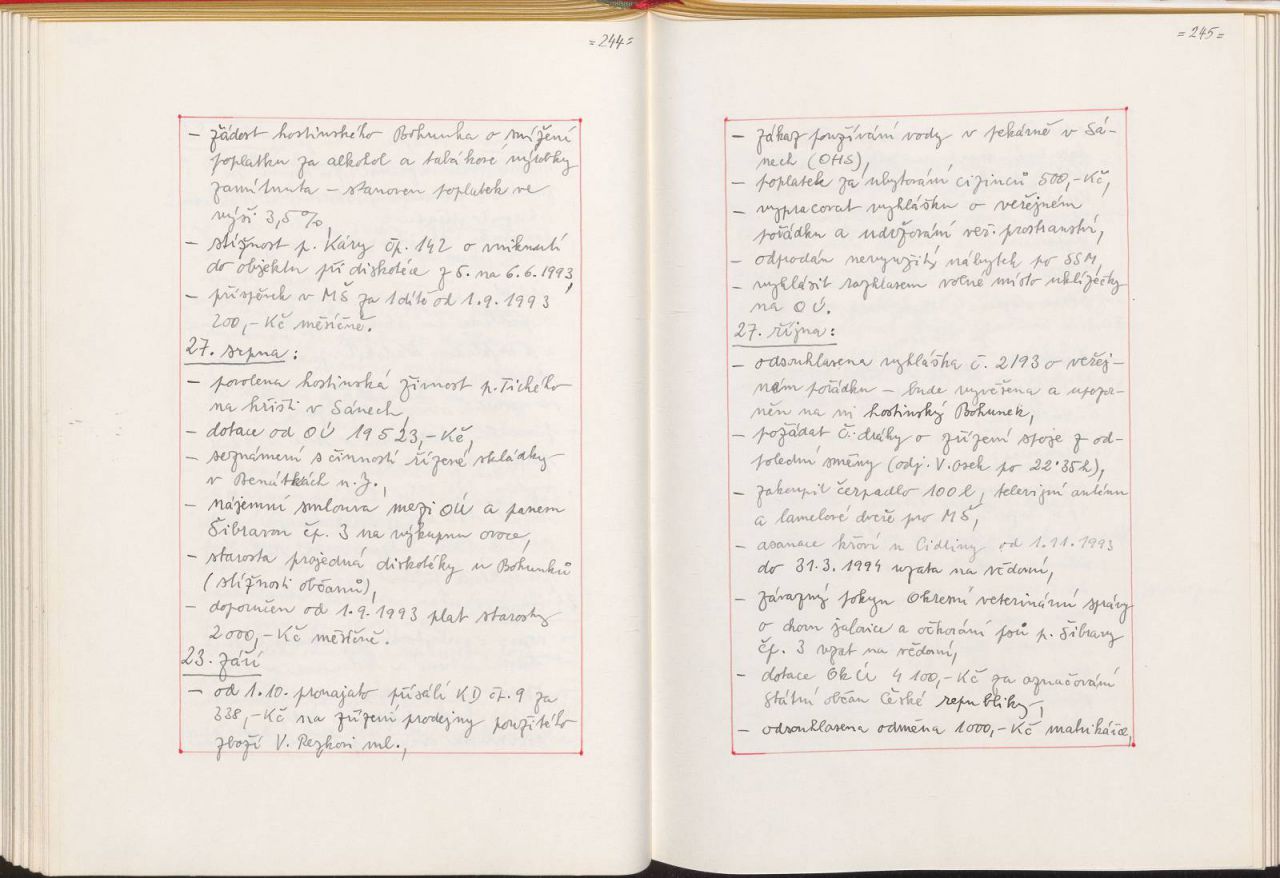 =244=
– žádost hostinského Bohunka o snížení
poplatku za alkohol a tabákové výrobky
zamítnuta – stanoven poplatek ve
výši 3,5%,
– stížnost p. Káry čp. 142 o vniknutí
do objektu při diskotéce z 5. na 6.6.1993,
– příspěvek v MŠ za 1 dítě od 1.9.1993
200,-Kč měsíčně.
27. srpna:
– povolena hostinská živnost p. Tichého
na hřišti v Sánech,
– dotace od OÚ 19523,-Kč,
– seznámení s činností řízené skládky
v Benátkách n. J.,
– nájemní smlouva mezi OÚ a panem
Šibravou čp. 3 na výkupnu ovoce,
– starosta projedná diskotéky u Bohunků
(stížnosti občanů),
– doporučen od 1.9.1993 plat starosty
2000,-Kč měsíčně.
23. září
– od 1.10. pronajato přísálí KD čp. 9 za
338,-Kč na zřízení prodejny použitého
zboží V. Pezkovi ml.,
=245=
– zákaz používání vody v pekárně v Sá-
nech (OHS),
– poplatek za ubytování cizinců 500,-Kč,
– vypracovat vyhlášku o veřejném
pořádku a udržování veř. prostranství,
– odprodán nevyužitý nábytek po SSM,
– vyhlásit rozhlasem volné místo uklízečky
na OÚ.
27. října:
– odsouhlasena vyhláška č. 2/93 o veřej-
ném pořádku – bude vyvěšena a upozor-
něn na ni hostinský Bohunek,
– požádat Č. dráhy o zřízení spoje z od-
polední směny (odj. V. Osek po 22.35 h),
– zakoupit čerpadlo 100 l, televizní anténu
a lamelové dveře pro MŠ,
– asanace křoví u Cidliny od 1.11.1993
do 31.3.1994 vzata na vědomí,
– závazný pokyn Okresní veterinární správy
o chovu jalovice a očkování psů p. Šibravy
čp. 3 vzat na vědomí,
– dotace OkÚ 4100,-Kč za označování
státní občan České republiky,
– odsouhlasena odměna 1000,-Kč matrikářce,